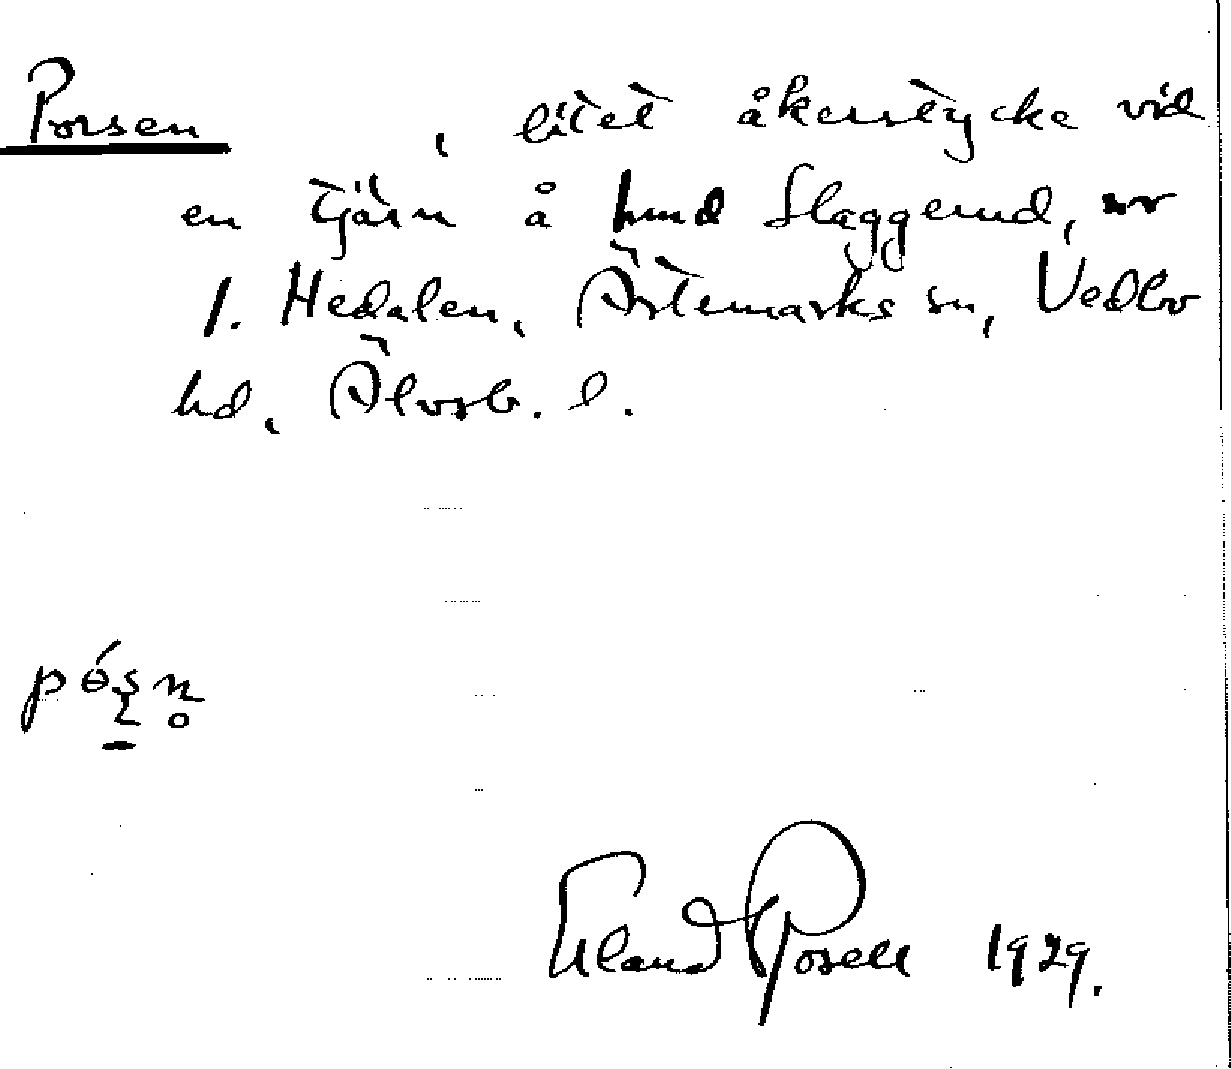 Porsen , litet åkerstycke vid
en tjärn å hmd Slaggerud, nr
1. Hedalen, Ärtemarks sn, Vedbo
hd, Älvsb. l.
pɵ́s̱n̥
Erland Rosell 1929.